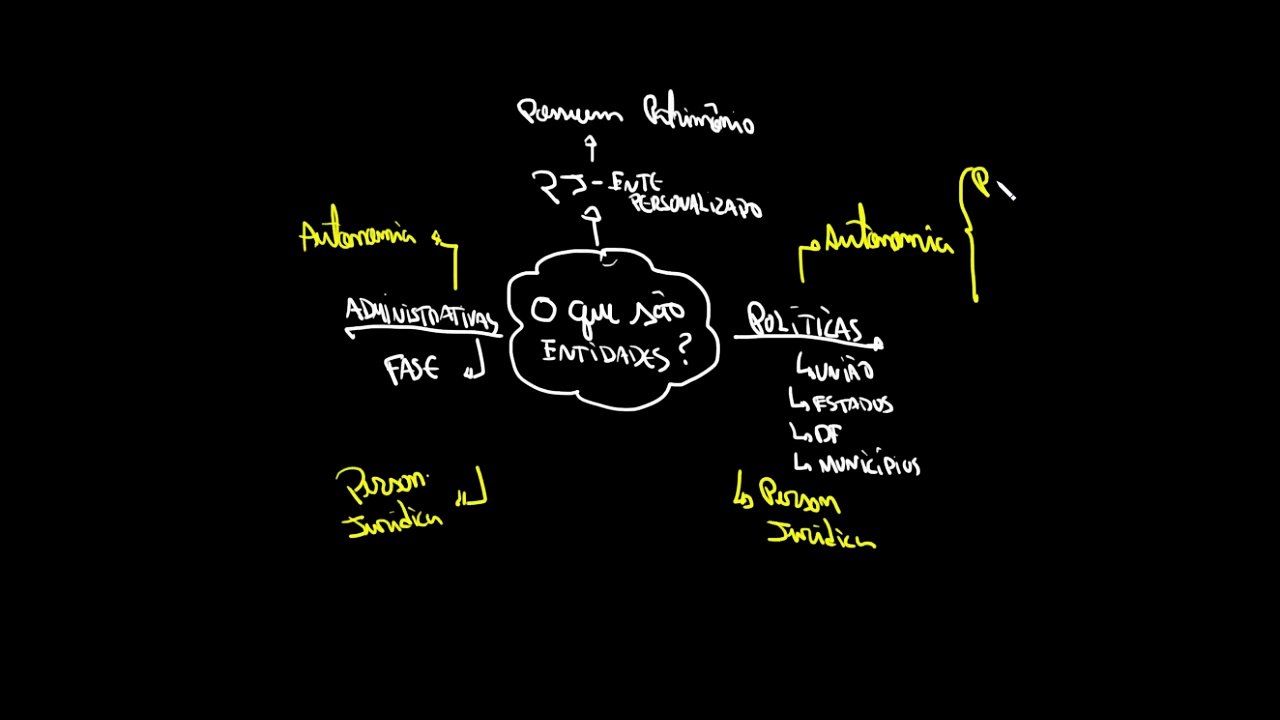 Possuem Patrimônio
PJ - ENTE
PERSONALIZADO
Autonomia
Autonomia
P
ADMINISTRATIVAS
O que são
ENTIDADES?
POLÍTICAS
FASE
UNIÃO
ESTADOS
DF
MUNICÍPIOS
Person.
Jurídica
Person
Jurídica